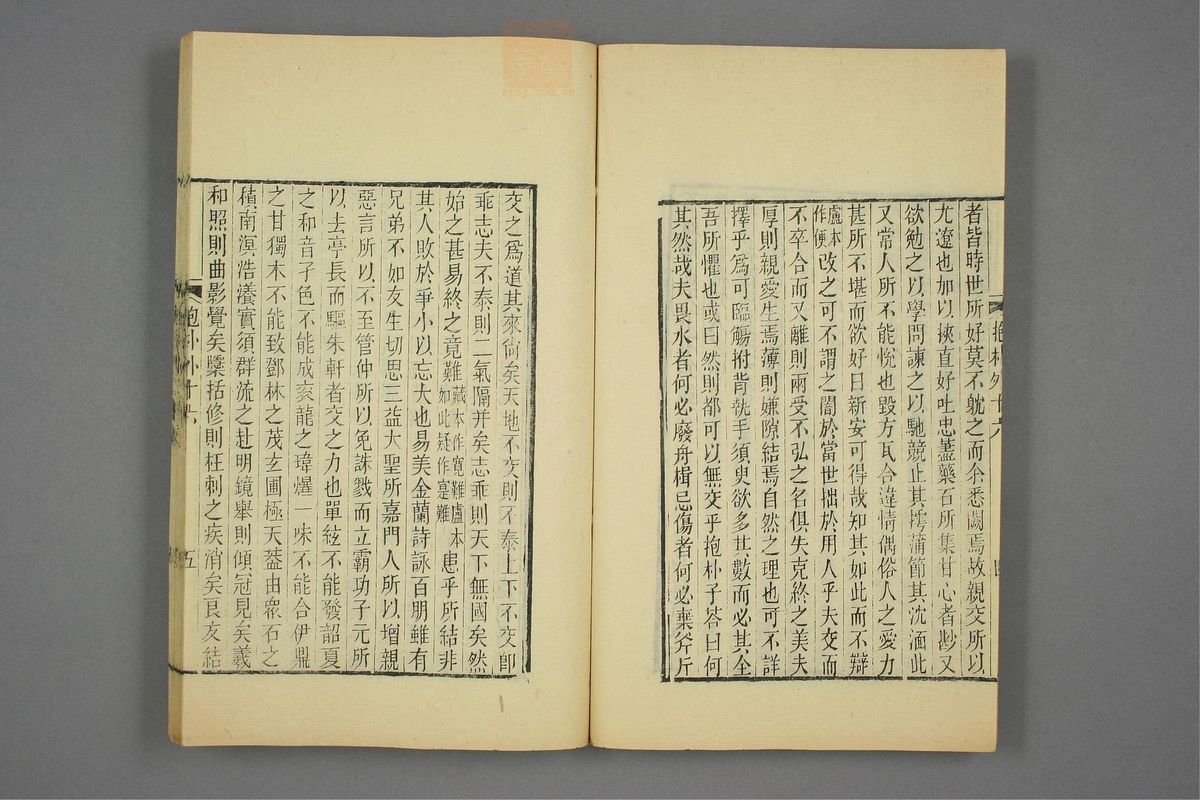 者皆時世所好莫不躭之而余悉闕焉故親交所以
尤遼也加以挾直好吐忠藎藥石所集甘心者尠又
欲勉之以學問諫之以馳競止其摴蒲節其沈湎此
又常人所不能悅也毀方瓦合違情偶俗人之愛力
甚所不堪而欲好日新安可得哉知其如此而不辯
盧本作便改之可不謂之闇於當世拙於用人乎夫交而
不卒合而又離則兩受不弘之名俱失克終之美夫
厚則親愛生焉薄則嫌隙結焉自然之理也可不詳
擇乎爲可臨觴拊背執手須臾欲多其數而必其全
吾所懼也或曰然則都可以無交乎抱朴子荅曰何
其然哉夫畏水者何必廢舟楫忌傷者何必棄斧斤
抱朴外十六
四
交之爲道其來尙矣天地不交則不泰上下不交卽
乖志夫不泰則二氣隔并矣志乖則天下無國矣然
始之甚易終之竟難藏本作寛難盧本如此疑作寔難患乎所結非
其人敗於爭小以忘大也易美金蘭詩詠百朋雖有
兄弟不如友生切思三益大聖所嘉門人所以增親
惡言所以不至管仲所以免誅戮而立霸功子元所
以去亭長而驅朱軒者交之力也單絃不能發韶夏
之和音孑色不能成袞龍之瑋爗一味不能合伊鼎
之甘獨木不能致鄧林之茂玄圃極天葢由衆石之
積南溟浩瀁實須群流之赴明鏡舉則傾冠見矣羲
和照則曲影覺矣櫽括修則枉刺之疾消矣良友結
抱朴外十六
五